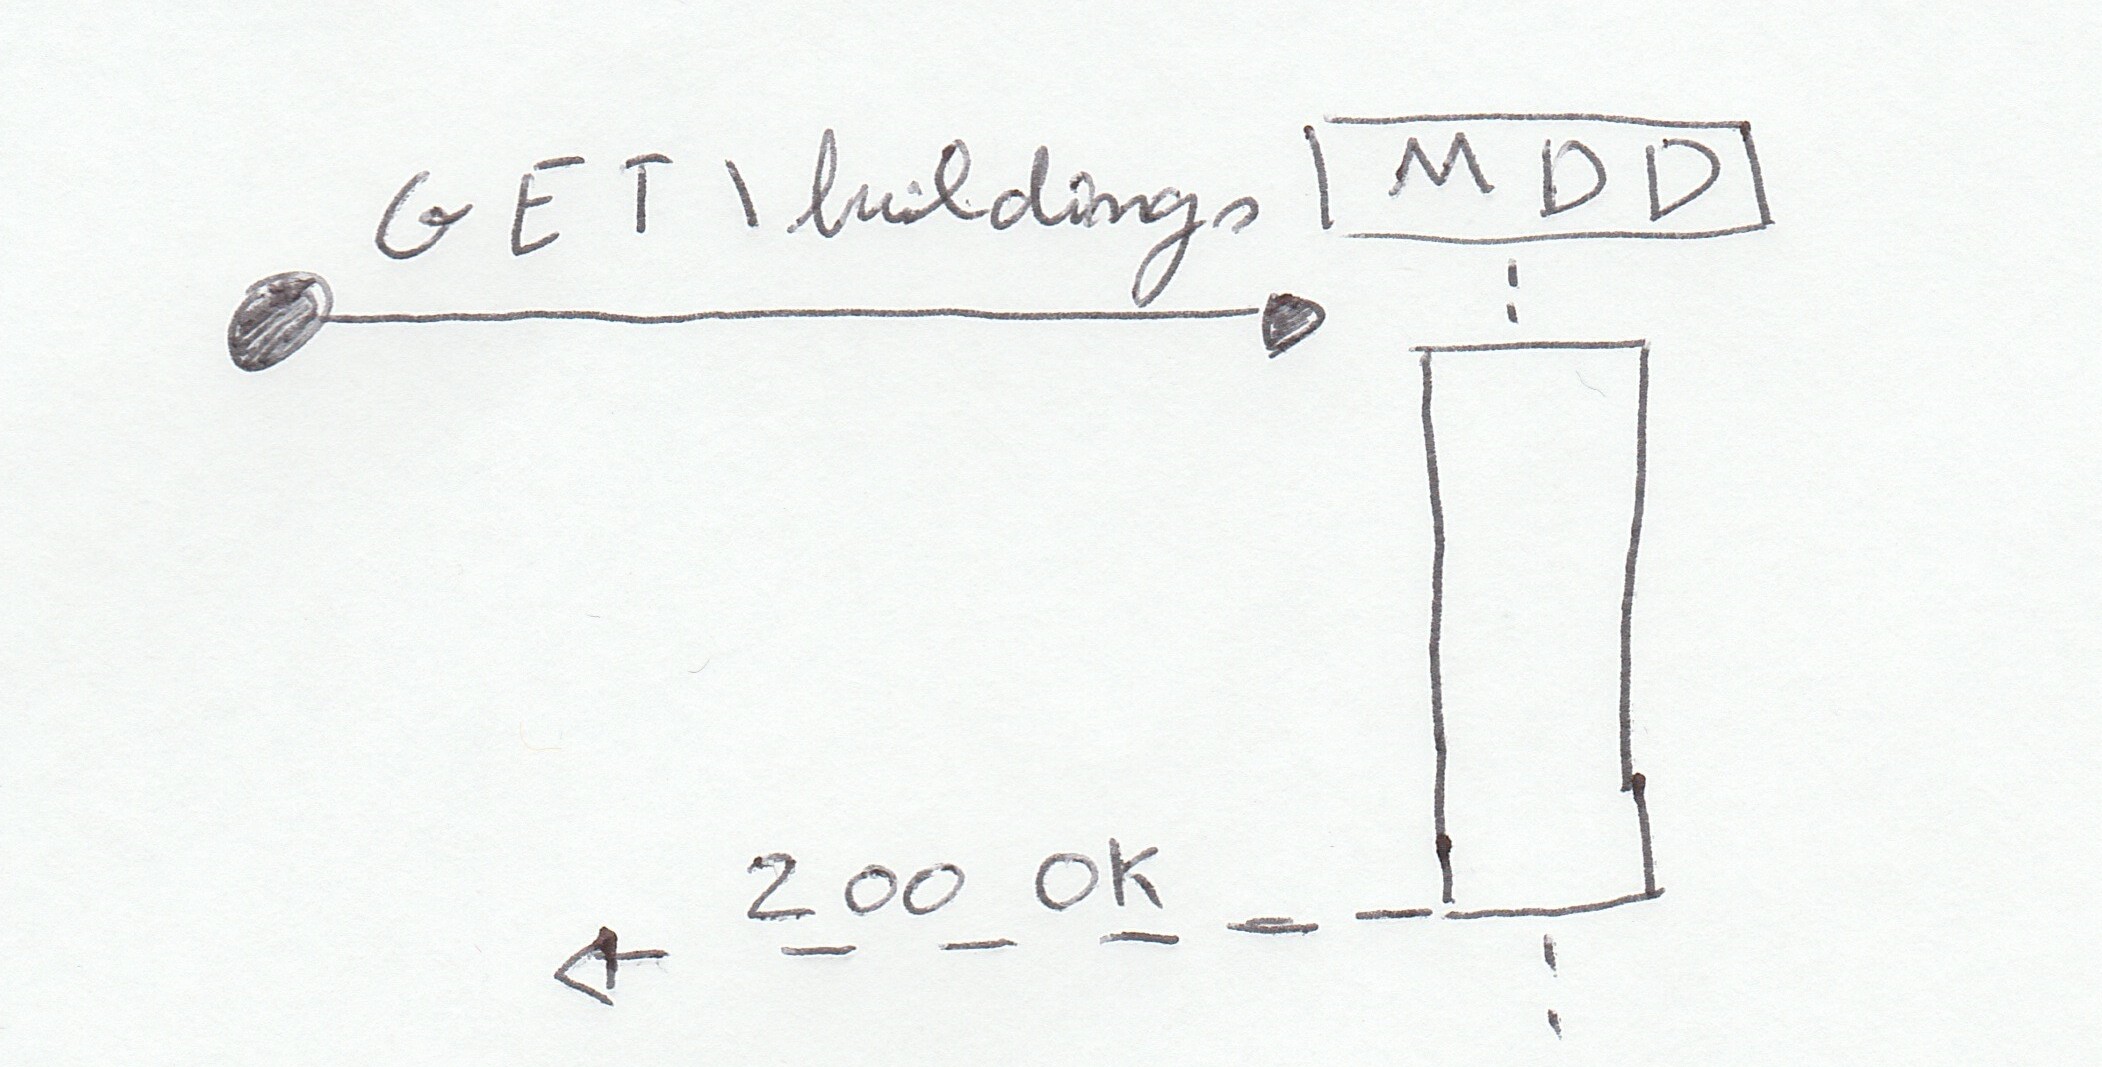 GET \buildings
MDD
200 OK